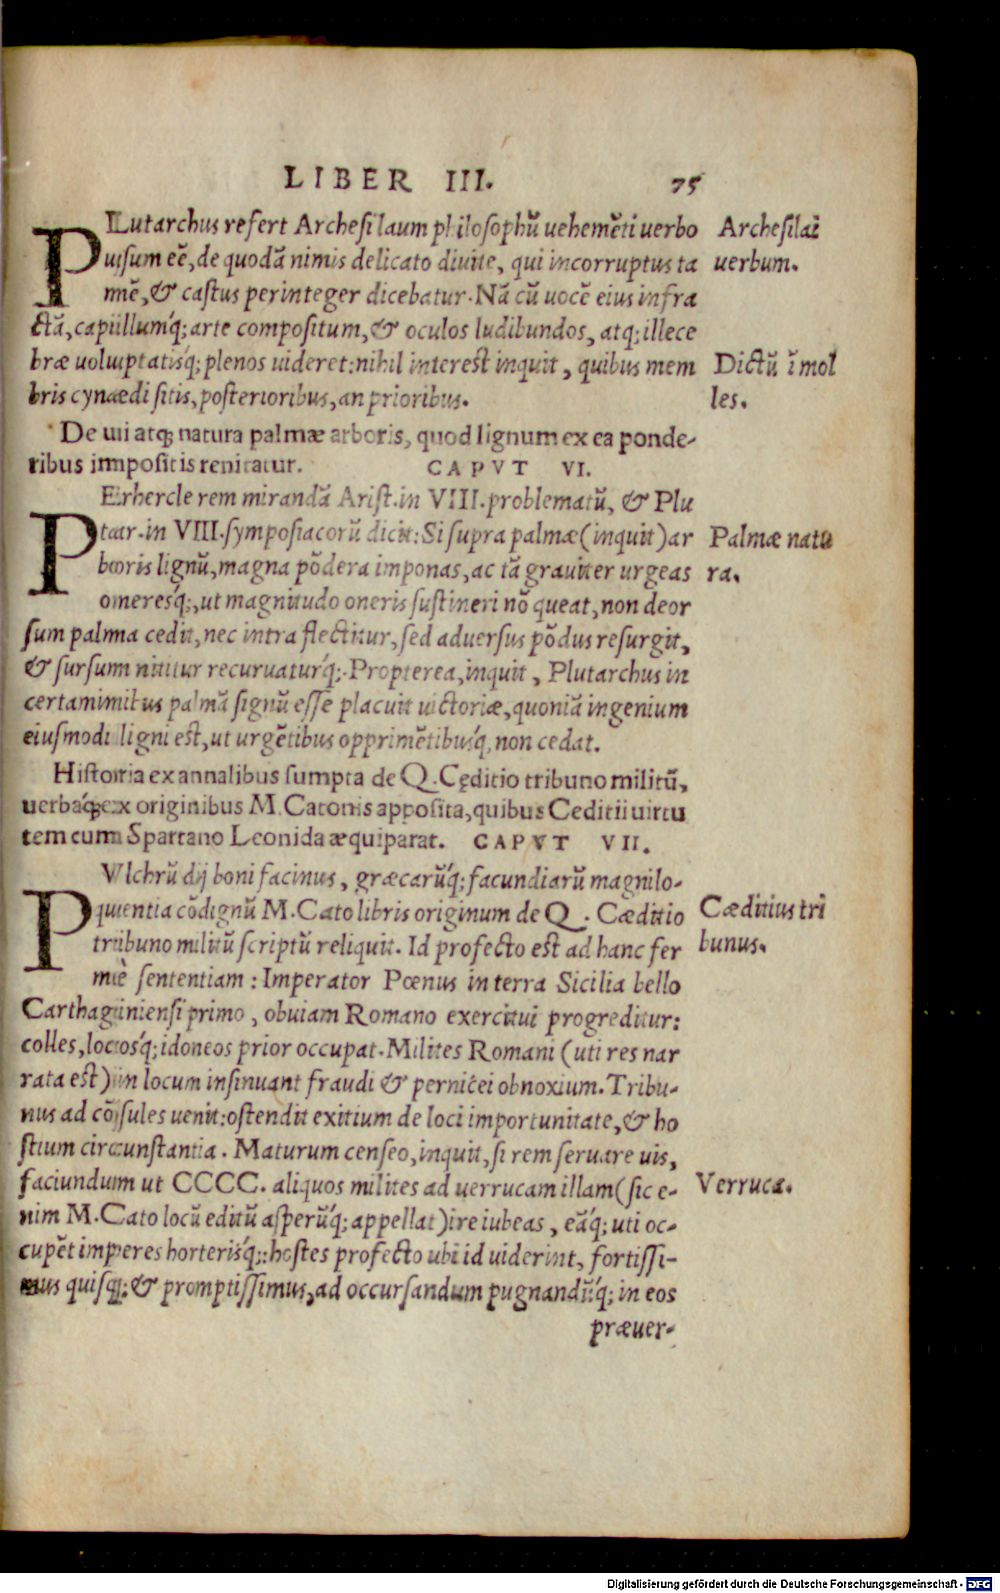 LIBER III. 75
PLutarchus refert Archesilaum philosophũ uehemẽti uerbo
uisum eẽ, de quodã nimis delicato diuite, qui incorruptus ta
mẽ, & castus perinteger dicebatur. Nã cũ uocẽ eius infra
ctã, capillumq́; arte compositum, & oculos ludibundos, atq; illece
bræ uoluptatisq́; plenos uideret: nihil interest inquit, quibus mem
bris cynædi sitis, posterioribus, an prioribus.
Archesilai
uerbum.
Dictũ ĩ mol
les.
De ui atq; natura palmæ arboris, quod lignum ex ea ponde-
ribus impositis renitatur. CAPVT VI.
PErhercle rem mirandã Arist. in VIII. problematũ, & Plu
tar. in VIII. symposiacorũ dicit: Si supra palmæ (inquit) ar
boris lignũ, magna põdera imponas, ac tã grauiter urgeas
omeresq́;, ut magnitudo oneris sustineri nõ queat, non deor
sum palma cedit, nec intra flectitur, sed aduersus põdus resurgit,
& sursum nititur recuruaturq́;. Propterea, inquit, Plutarchus in
certaminibus palmã signũ esse placuit uictoriæ, quoniã ingenium
eiusmodi ligni est, ut urgẽtibus opprimẽtibusq́, non cedat.
Palmæ natu
ra.
Historia ex annalibus sumpta de Q. Cęditio tribuno militũ,
uerbaq́; ex originibus M. Catonis apposita, quibus Ceditii uirtu
tem cum Spartano Leonida æquiparat. CAPVT VII.
PVlchrũ dij boni facinus, græcarũq́; facundiarũ magnilo-
quentia cõdignũ M. Cato libris originum de Q. Cæditio
tribuno militũ scriptũ reliquit. Id profecto est ad hanc fer
mè sententiam: Imperator Pœnus in terra Sicilia bello
Carthaginiensi primo, obuiam Romano exercitui progreditur:
colles, locosq́; idoneos prior occupat. Milites Romani (uti res nar
rata est) in locum insinuant fraudi & perniciei obnoxium. Tribu-
nus ad cõsules uenit: ostendit exitium de loci importunitate, & ho
stium circunstantia. Maturum censeo, inquit, si rem seruare uis,
faciundum ut CCCC. aliquos milites ad uerrucam illam (sic e-
nim M. Cato locũ editũ asperũq́; appellat) ire iubeas, eãq́; uti oc-
cupẽt imperes horterisq́;: hostes profecto ubi id uiderint, fortissi-
mus quisq;: & promptissimus, ad occursandum pugnandũq́; in eos
præuer-
Cæditius tri
bunus.
Verruca.
Digitalisierung gefördert durch die Deutsche Forschungsgemeinschaft - DFG